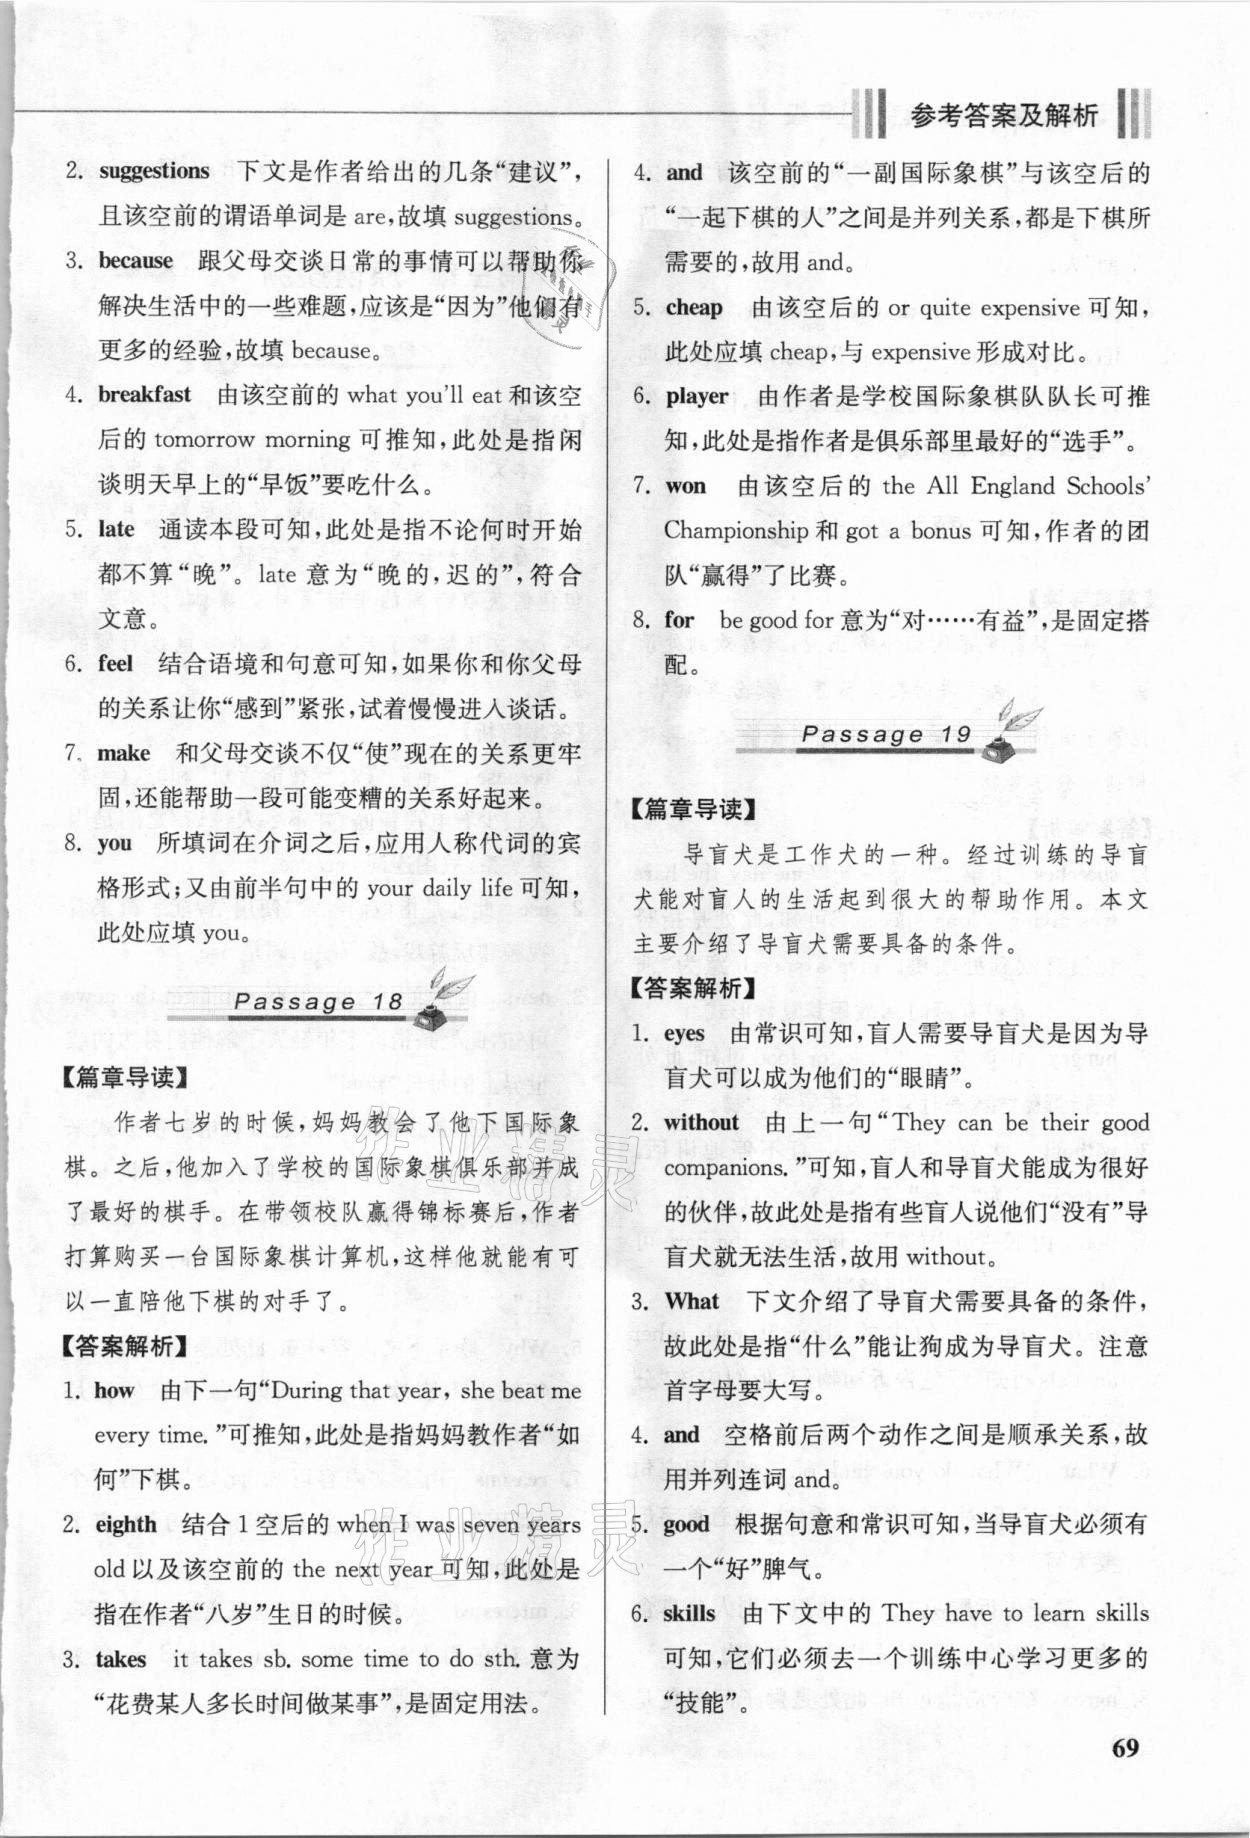 参考答案及解析
2. suggestions 下文是作者给出的几条“建议”，
且该空前的谓语单词是 are,故填 suggestions。
3. because 跟父母交谈日常的事情可以帮助你
解决生活中的一些难题,应该是“因为”他们有
更多的经验,故填 because。
4. breakfast 由该空前的 what you'll eat 和该空
后的 tomorrow morning 可推知,此处是指闲
谈明天早上的“早饭”要吃什么。
5. late 通读本段可知,此处是指不论何时开始
都不算“晚”。late 意为“晚的,迟的”,符合
文意。
6. feel 结合语境和句意可知,如果你和你父母
的关系让你“感到”紧张,试着慢慢进入谈话。
7. make 和父母交谈不仅“使”现在的关系更牢
固,还能帮助一段可能变糟的关系好起来。
8. you 所填词在介词之后,应用人称代词的宾
格形式;又由前半句中的 your daily life 可知,
此处应填 you。
Passage 18
【篇章导读】
作者七岁的时候,妈妈教会了他下国际象
棋。之后,他加入了学校的国际象棋俱乐部并成
了最好的棋手。在带领校队赢得锦标赛后,作者
打算购买一台国际象棋计算机,这样他就能有可
以一直陪他下棋的对手了。
【答案解析】
1. how 由下一句“During that year, she beat me
every time.”可推知,此处是指妈妈教作者“如
何”下棋。
2. eighth 结合 1 空后的 when I was seven years
old 以及该空前的 the next year 可知,此处是
指在作者“八岁”生日的时候。
3. takes it takes sb. some time to do sth. 意为
“花费某人多长时间做某事”,是固定用法。
4. and 该空前的“一副国际象棋”与该空后的
“一起下棋的人”之间是并列关系,都是下棋所
需要的,故用 and。
5. cheap 由该空后的 or quite expensive 可知,
此处应填 cheap,与 expensive 形成对比。
6. player 由作者是学校国际象棋队队长可推
知,此处是指作者是俱乐部里最好的“选手”。
7. won 由该空后的 the All England Schools'
Championship 和 got a bonus 可知,作者的团
队“赢得”了比赛。
8. for be good for 意为“对……有益”,是固定搭
配。
Passage 19
【篇章导读】
导盲犬是工作犬的一种。经过训练的导盲
犬能对盲人的生活起到很大的帮助作用。本文
主要介绍了导盲犬需要具备的条件。
【答案解析】
1. eyes 由常识可知,盲人需要导盲犬是因为导
盲犬可以成为他们的“眼睛”。
2. without 由上一句“They can be their good
companions.”可知,盲人和导盲犬能成为很好
的伙伴,故此处是指有些盲人说他们“没有”导
盲犬就无法生活,故用 without。
3. What 下文介绍了导盲犬需要具备的条件,
故此处是指“什么”能让狗成为导盲犬。注意
首字母要大写。
4. and 空格前后两个动作之间是顺承关系,故
用并列连词 and。
5. good 根据句意和常识可知,当导盲犬必须有
一个“好”脾气。
6. skills 由下文中的 They have to learn skills
可知,它们必须去一个训练中心学习更多的
“技能”。
作业精灵
作业精灵
69